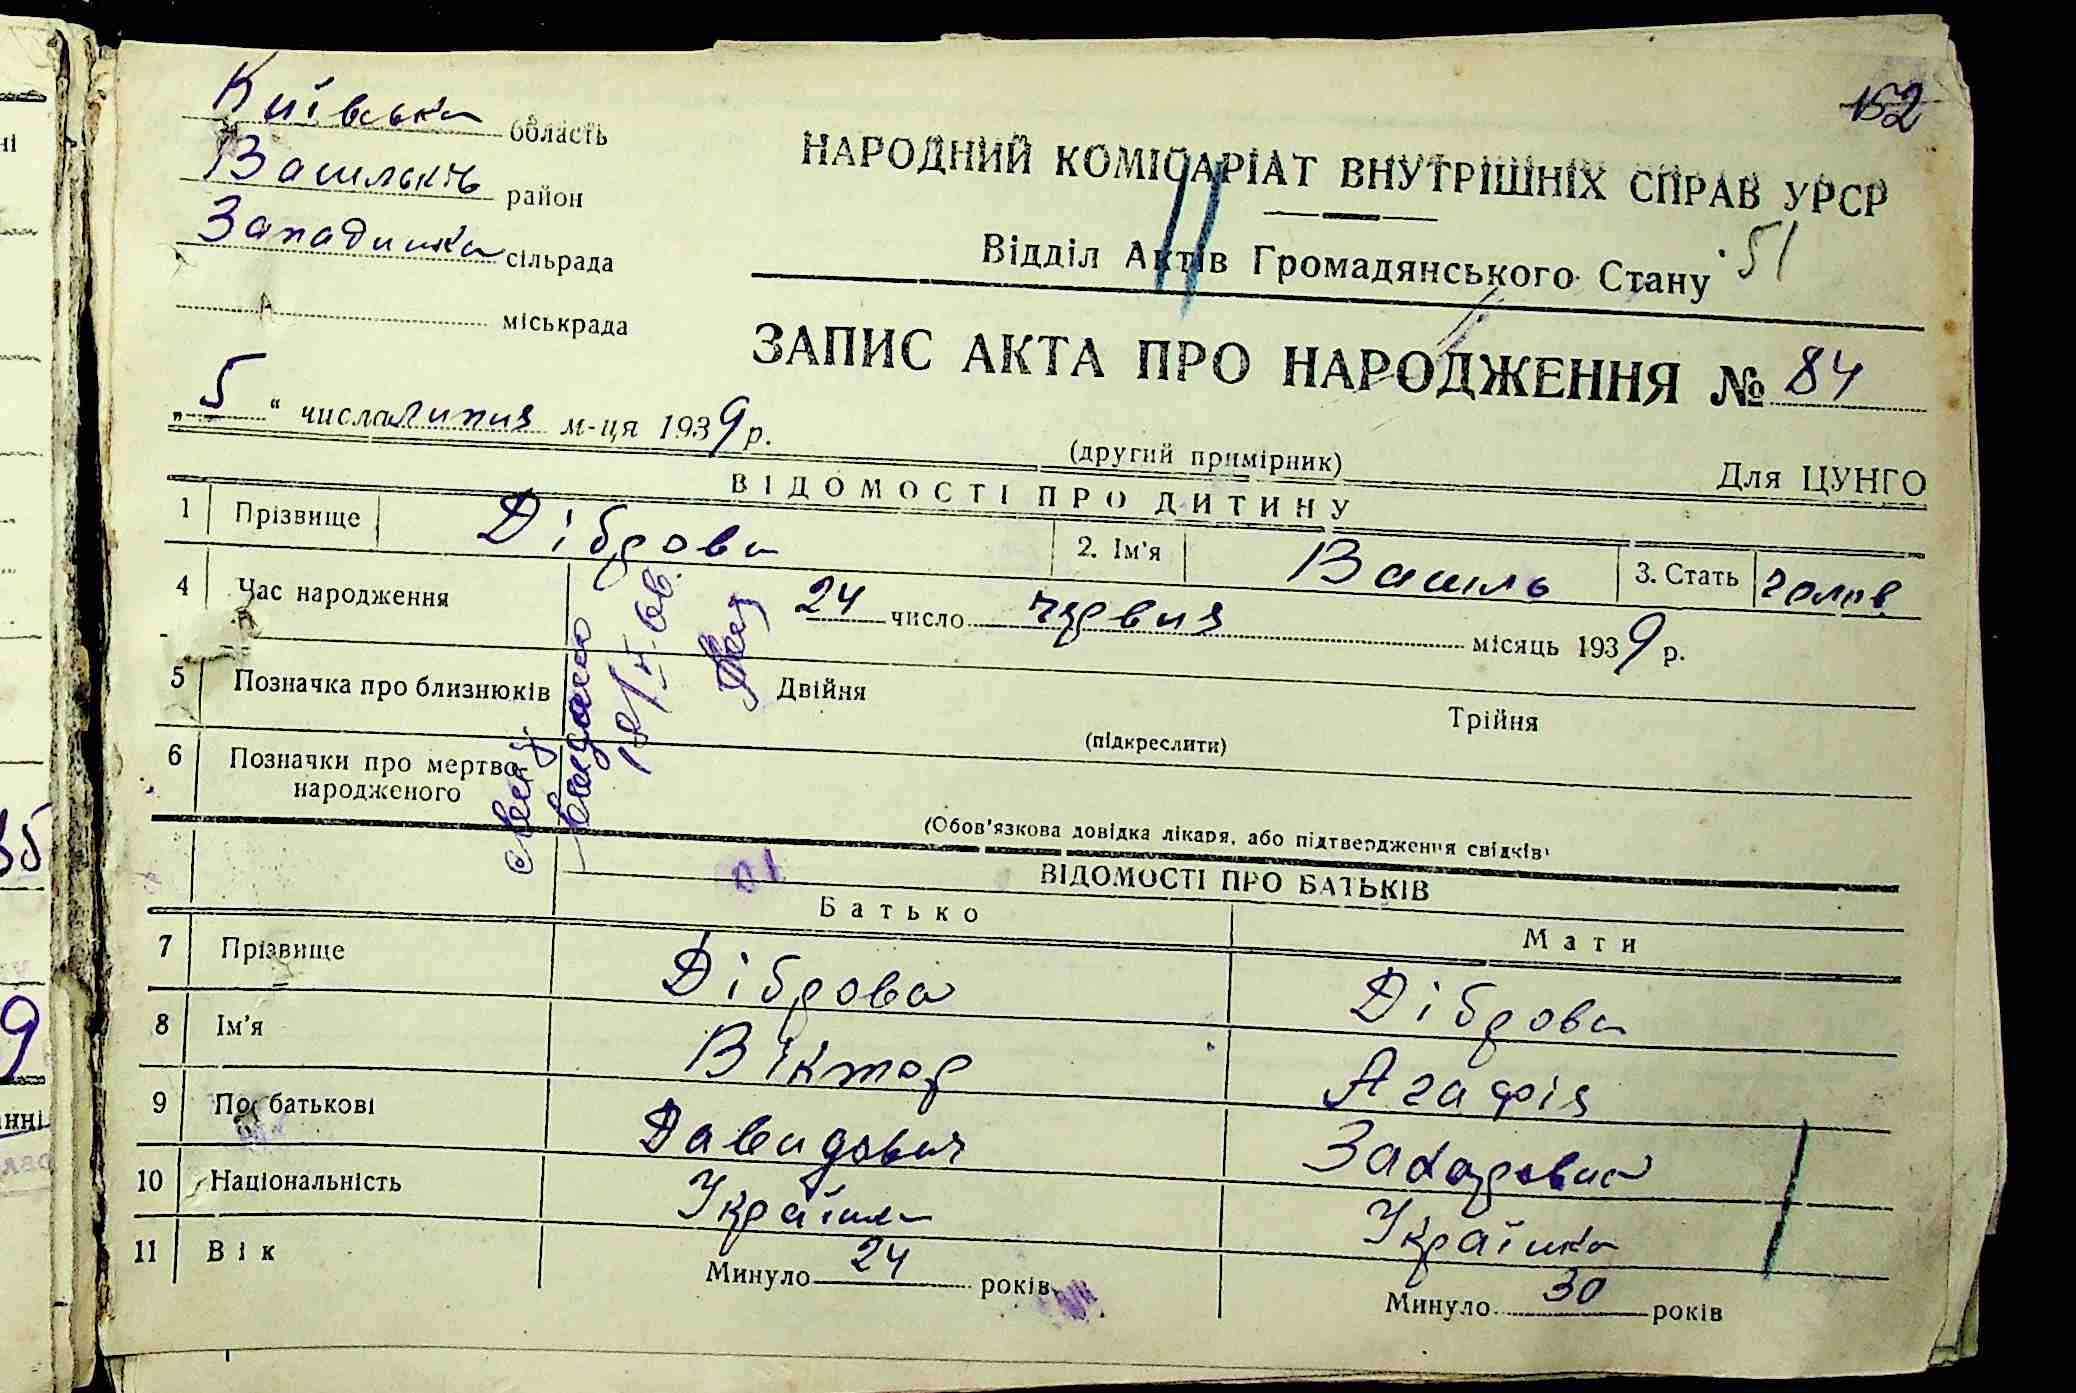 152
Київська область
Васильків район
Западинка сільрада
міськрада
НАРОДНИЙ КОМІСАРІАТ ВНУТРІШНІХ СПРАВ УРСР
Відділ Актів Громадянського Стану
51
ЗАПИС АКТА ПРО НАРОДЖЕННЯ № 84
„5“ числа липня м-ця 1939 р.
(другий примірник)
Для ЦУНГО
ВІДОМОСТІ ПРО ДИТИНУ
1 Прізвище Діброва 2. Ім'я Василь 3. Стать чолов.
4 Час народження 24 число червня місяць 1939 р.
5 Позначка про близнюків Двійня Трійня
(підкреслити)
6 Позначки про мертво-
народженого
(Обов'язкова довідка лікаря, або підтвердження свідків)
ВІДОМОСТІ ПРО БАТЬКІВ
Батько Мати
7 Прізвище Діброва Діброва
8 Ім'я Віктор Агафія
9 По батькові Давидович Захаровна
10 Національність Українець Українка
11 Вік Минуло 24 років Минуло 30 років